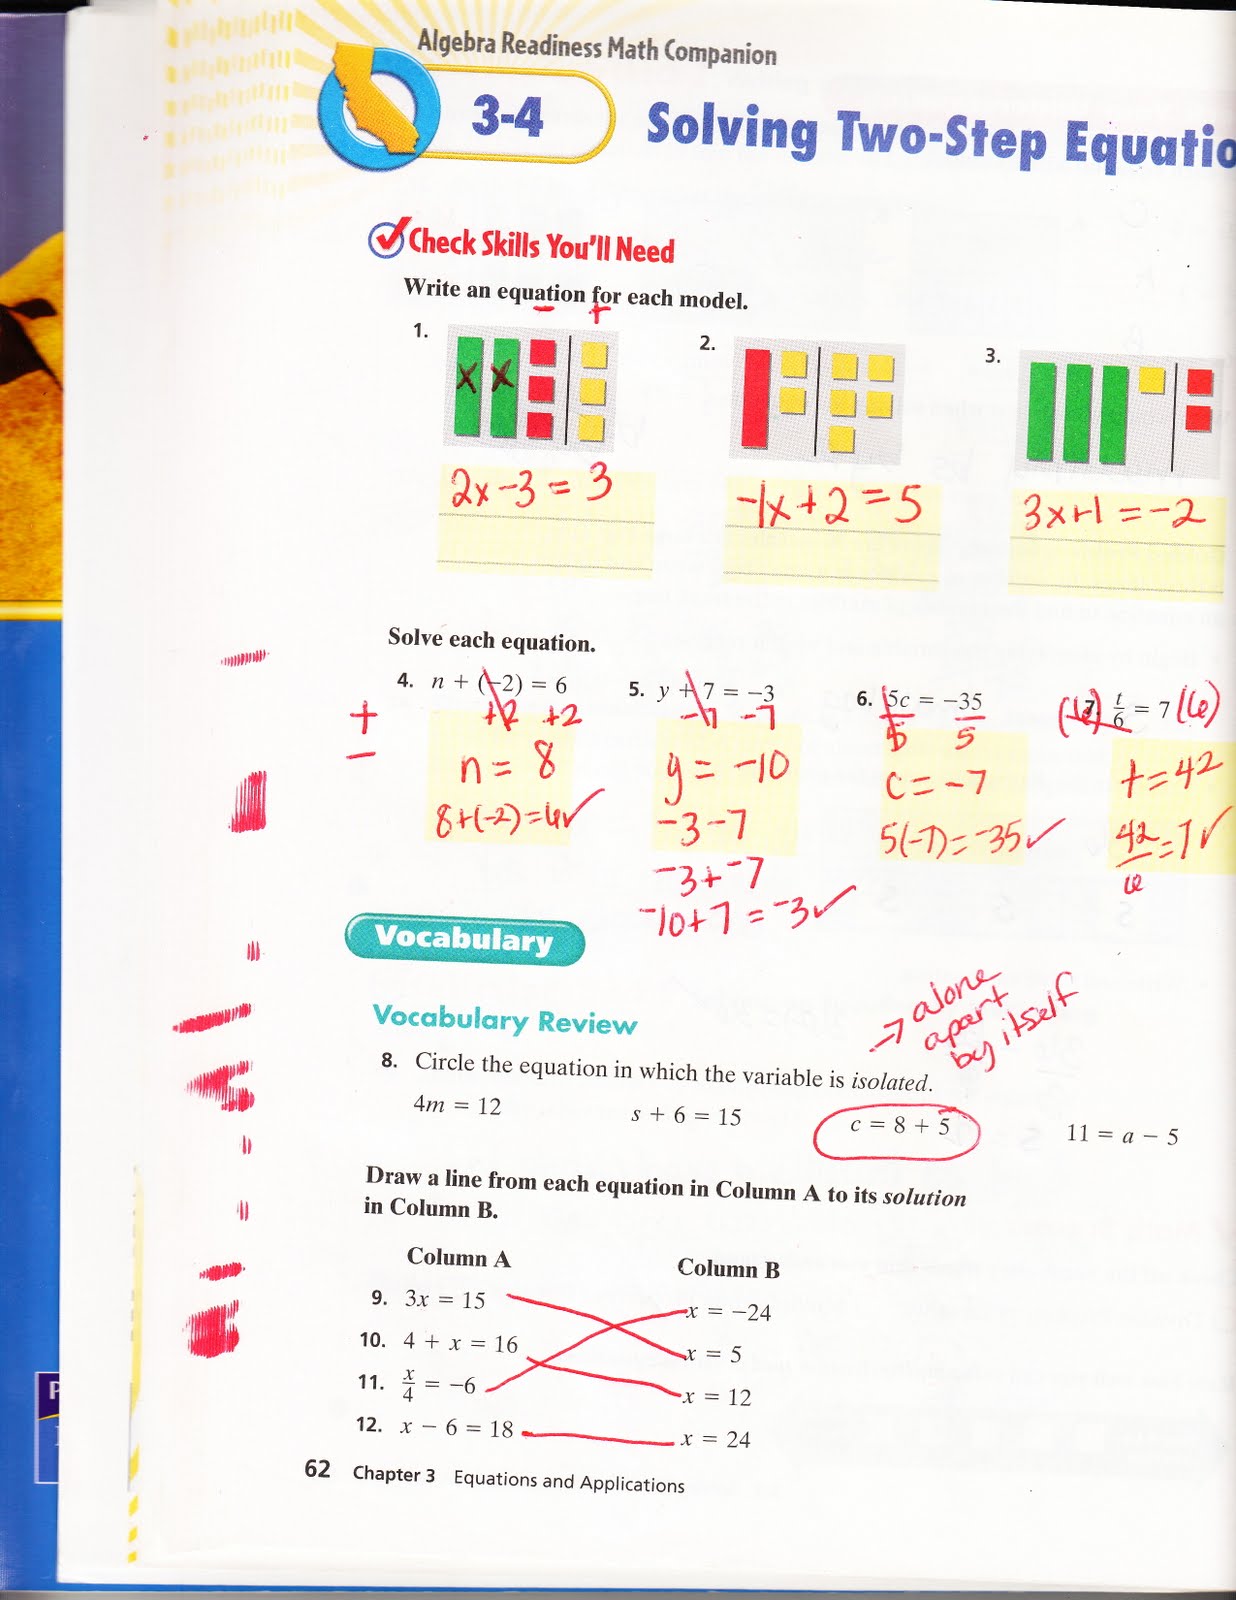 Algebra Readiness Math Companion
3-4 Solving Two-Step Equatio
Check Skills You'll Need
Write an equation for each model.
− +
1. 2. 3.
x x
2x - 3 = 3 -1x + 2 = 5 3x+1 = -2
Solve each equation.
4. n + (−2) = 6 5. y + 7 = −3 6. 5c = −35 (6) 7. t/6 = 7 (6)
+ +2 +2 -7 -7 5 5
−
n = 8 y = -10 c = -7 t = 42
8+(-2)=6✓ -3-7 5(-7)=-35✓ 42/6=7✓
-3+-7
-10+7=-3✓
Vocabulary
→ alone
apart
by itself
Vocabulary Review
8. Circle the equation in which the variable is isolated.
4m = 12 s + 6 = 15 c = 8 + 5 11 = a − 5
Draw a line from each equation in Column A to its solution
in Column B.
Column A Column B
9. 3x = 15 x = −24
10. 4 + x = 16 x = 5
11. x/4 = −6 x = 12
12. x − 6 = 18 x = 24
62 Chapter 3 Equations and Applications
P